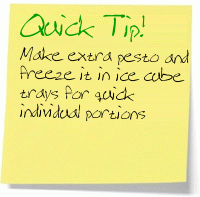 Quick Tip!
Make extra pesto and
freeze it in ice cube
trays for quick
individual portions